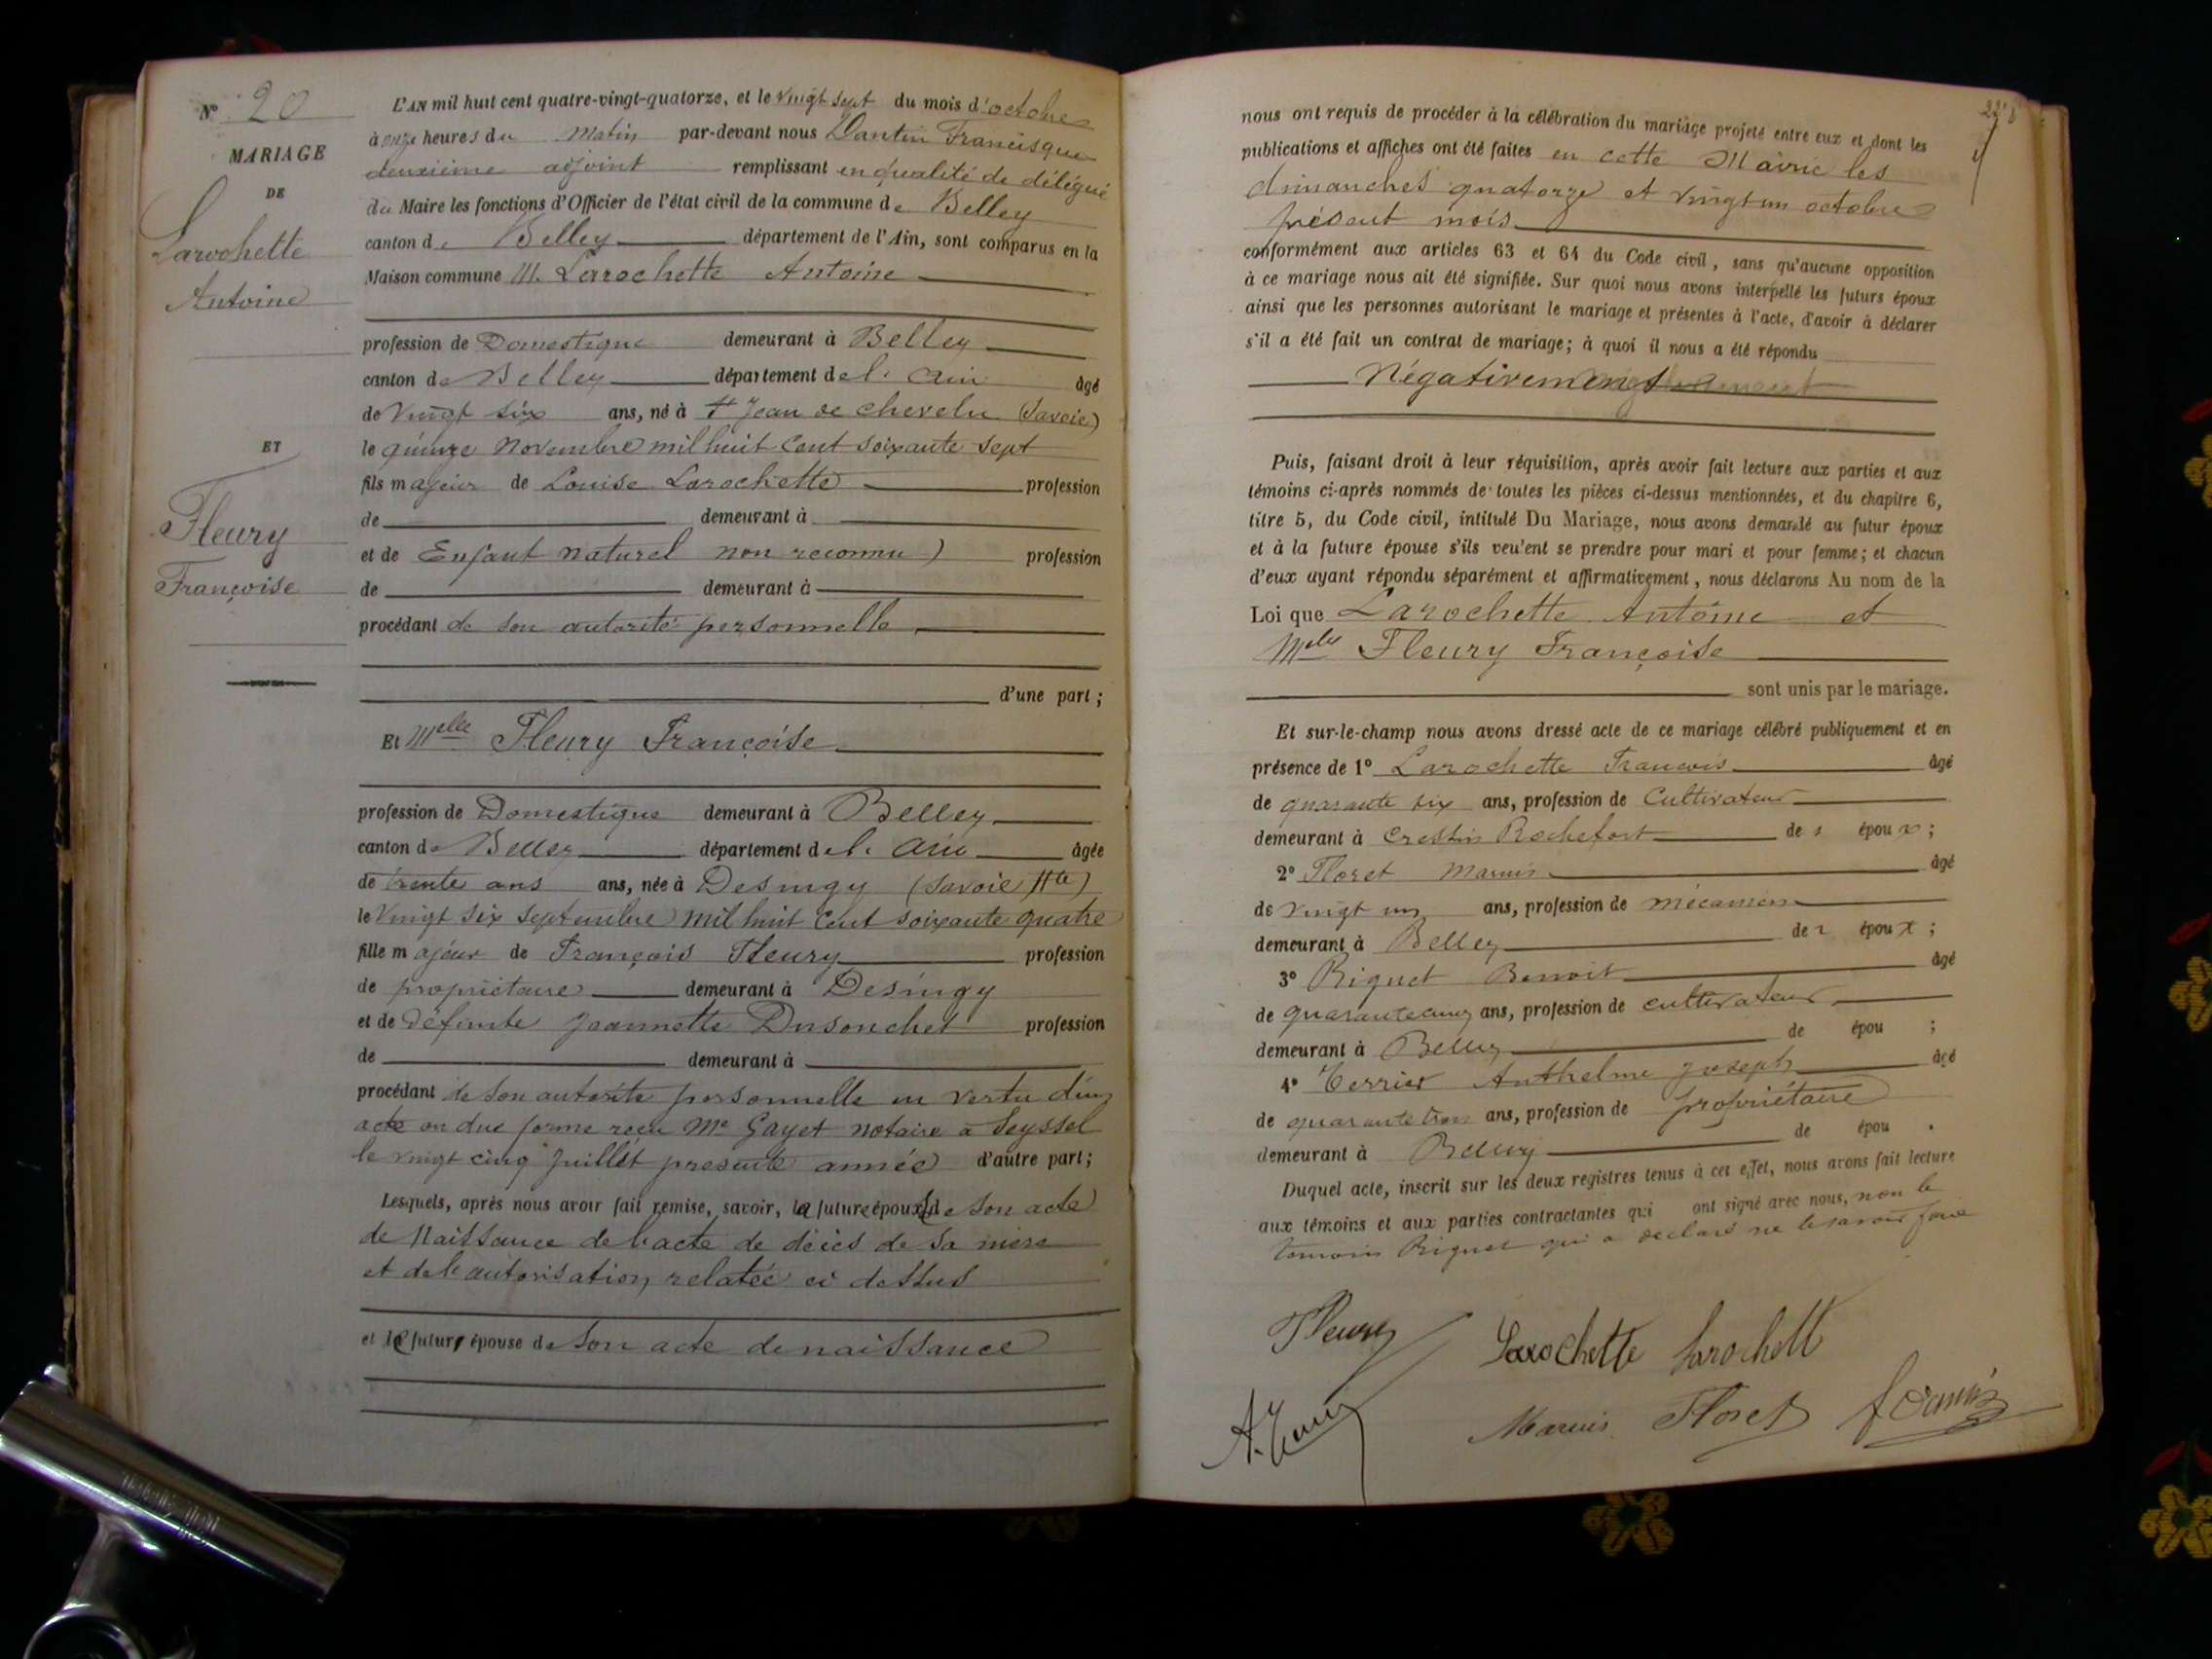 N° 20
MARIAGE
DE
Larochette
Antoine
ET
Fleury
Françoise
L'AN mil huit cent quatre-vingt-quatorze, et le vingt sept du mois d'octobre
à onze heures du matin par-devant nous Dantin Francisque
deuxième adjoint remplissant en qualité de délégué
du Maire les fonctions d'Officier de l'état civil de la commune de Belley
canton de Belley département de l'Ain, sont comparus en la
Maison commune M. Larochette Antoine
profession de Domestique demeurant à Belley
canton de Belley département de l'Ain âgé
de vingt six ans, né à St Jean de Chevelu (Savoie)
le quinze Novembre mil huit cent soixante sept
fils majeur de Louise Larochette profession
de demeurant à
et de Enfant naturel non reconnu) profession
de demeurant à
procédant de son autorité personnelle
d'une part ;
Et Melle Fleury Françoise
profession de Domestique demeurant à Belley
canton de Belley département de l'Ain âgée
de trente ans ans, née à Desingy (Savoie Hte)
le vingt six septembre mil huit cent soixante quatre
fille majeur de François Fleury profession
de propriétaire demeurant à Desingy
et de défunte Jeannette Dusonchet profession
de demeurant à
procédant de son autorité personnelle en vertu d'un
acte en due forme reçu Me Gayet notaire à Seyssel
le vingt cinq juillet présente année d'autre part;
Lesquels, après nous avoir fait remise, savoir, la future épouse de son acte
de Naissance de l'acte de décès de sa mère
et de l'autorisation relatée ci dessus
et le futur épouse de son acte de naissance
nous ont requis de procéder à la célébration du mariage projeté entre eux et dont les
publications et affiches ont été faites en cette Mairie les
dimanches quatorze et vingt un octobre
présent mois
conformément aux articles 63 et 64 du Code civil, sans qu'aucune opposition
à ce mariage nous ait été signifiée. Sur quoi nous avons interpellé les futurs époux
ainsi que les personnes autorisant le mariage et présentes à l'acte, d'avoir à déclarer
s'il a été fait un contrat de mariage; à quoi il nous a été répondu
Négativement
Puis, faisant droit à leur réquisition, après avoir fait lecture aux parties et aux
témoins ci-après nommés de toutes les pièces ci-dessus mentionnées, et du chapitre 6,
titre 5, du Code civil, intitulé Du Mariage, nous avons demandé au futur époux
et à la future épouse s'ils veulent se prendre pour mari et pour femme; et chacun
d'eux ayant répondu séparément et affirmativement, nous déclarons Au nom de la
Loi que Larochette Antoine et
Melle Fleury Françoise
sont unis par le mariage.
Et sur-le-champ nous avons dressé acte de ce mariage célébré publiquement et en
présence de 1° Larochette François âgé
de quarante six ans, profession de Cultivateur
demeurant à Cressin Rochefort de s époux ;
2° Floret Marius âgé
de vingt un ans, profession de mécanicien
demeurant à Belley de époux ;
3° Riguet Benoit âgé
de quarante cinq ans, profession de cultivateur
demeurant à Belley de épou ;
4° Terrier Anthelme Joseph âgé
de quarante trois ans, profession de propriétaire
demeurant à Belley de épou .
Duquel acte, inscrit sur les deux registres tenus à cet effet, nous avons fait lecture
aux témoins et aux parties contractantes qui ont signé avec nous, non le
témoin Riguet qui a déclaré ne le savoir faire
Fleury Larochette Larochett
Marius Floret